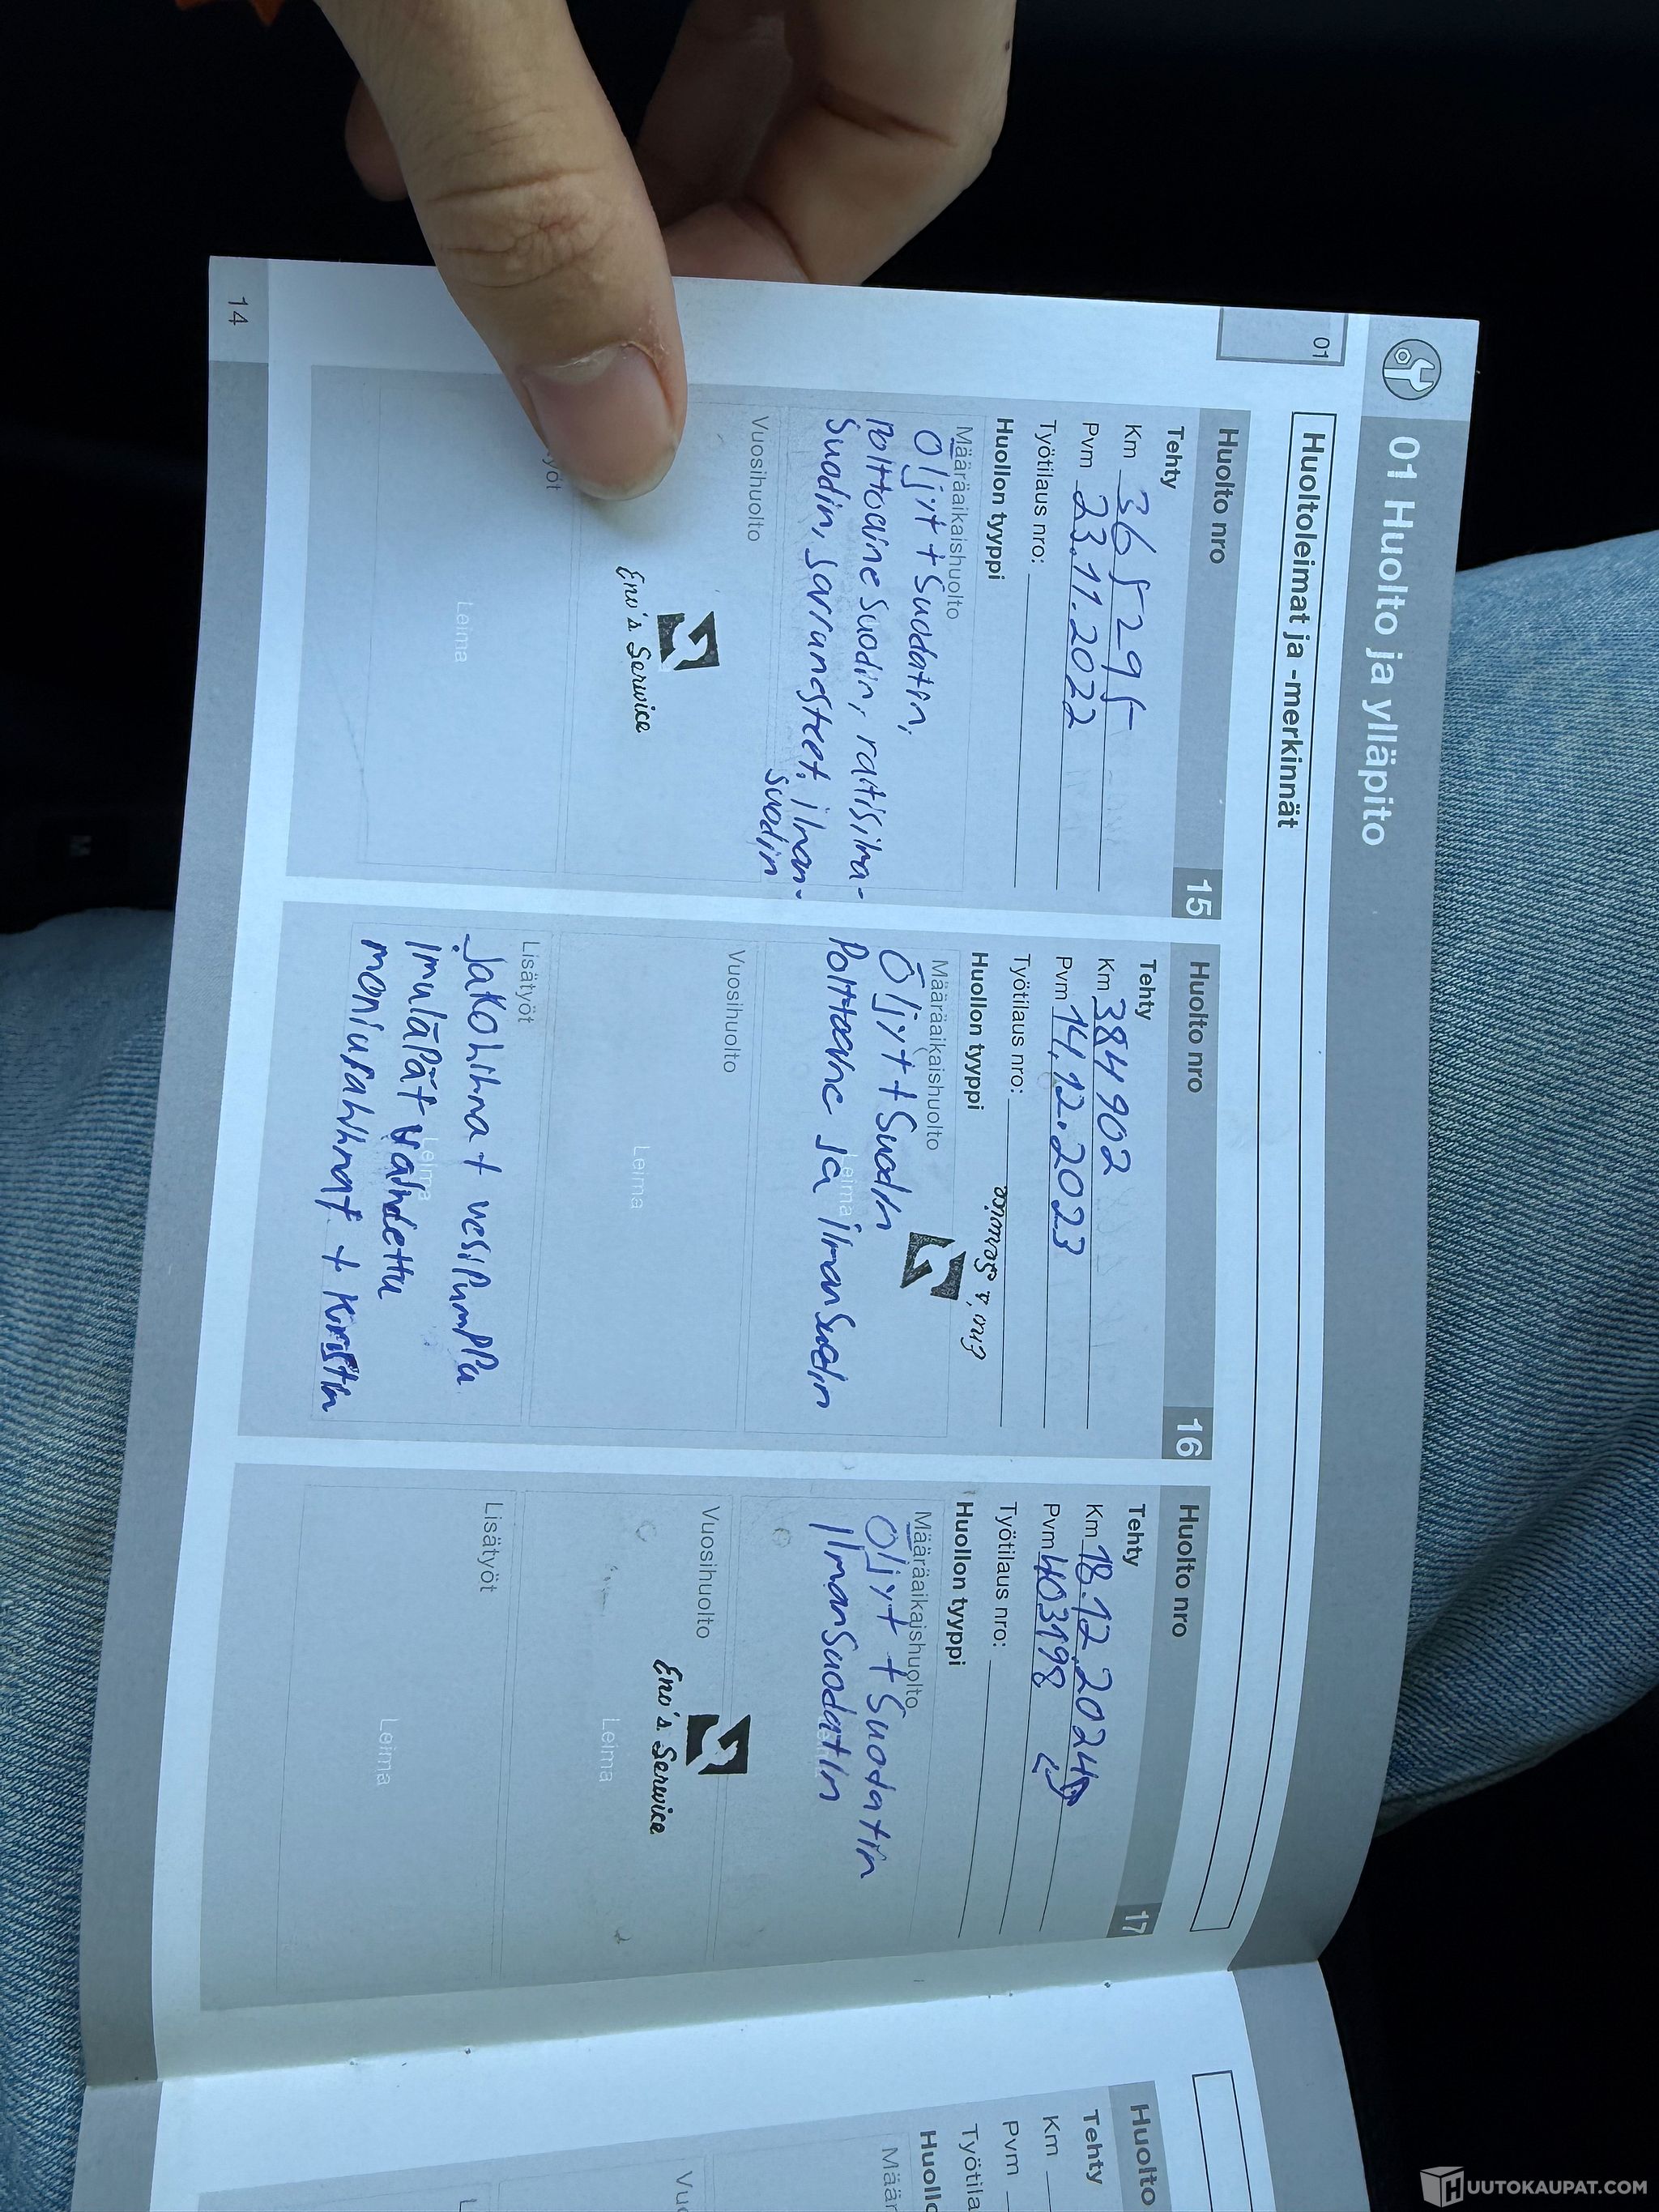 01 Huolto ja ylläpito
01
Huoltoleimat ja -merkinnät
Huolto nro 15
Tehty
Km 365295
Pvm 23.11.2022
Työtilaus nro:
Huollon tyyppi
Määräaikaishuolto
Öljyt + Suodatin,
Polttoaine Suodin, raitisilma-
Suodin, Jarrunesteet, ilman-
suodin
Vuosihuolto
Eno's Service
yöt
Leima
Huolto nro 16
Tehty
Km 384902
Pvm 14.12.2023
Työtilaus nro:
Huollon tyyppi
Eno's Service
Määräaikaishuolto
Öljyt + Suodin
Leima
Polttoaine ja ilmanSuodin
Vuosihuolto
Leima
Lisätyöt
Jakohihna + vesipumppu
Imuläpät vaihdettu
Leima
moniurahihnat +
Huolto nro 17
Tehty
Km 18.12.2024
Pvm 403198
Työtilaus nro:
Huollon tyyppi
Määräaikaishuolto
Öljyt + Suodatin
IlmanSuodatin
Vuosihuolto
Eno's Service
Leima
Lisätyöt
Leima
14
Huolto
Tehty
Km
Pvm
Työtila
Huollo
Määr
Vuo
L
HUUTOKAUPAT.COM